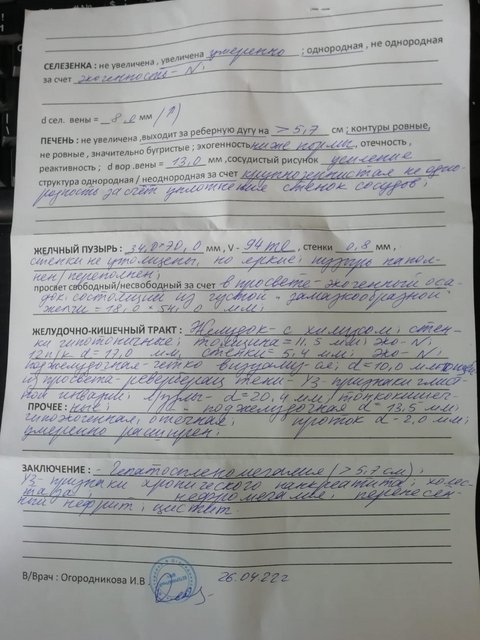 СЕЛЕЗЕНКА : не увеличена , увеличена умеренно ; однородная , не однородная
за счет эхогенность - N ;
d сел. вены = 8,0 мм /↑/
ПЕЧЕНЬ : не увеличена ,выходит за реберную дугу на > 5,7 см ; контуры ровные,
не ровные , значительно бугристые ; эхогенность ниже нормы, отечность ,
реактивность ; d вор .вены = 13,0 мм ,сосудистый рисунок усиление
структура однородная / неоднородная за счет крупнозернистая не одно-
родность за счёт уплотнения стенок сосудов ;
ЖЕЛЧНЫЙ ПУЗЫРЬ : 34,0*70,0 мм , V - 94 ml , стенки 0,8 мм ,
стенки не утолщены, но яркие ; пузырь напол-
нен/переполнен ;
просвет свободный/несвободный за счет в просвете - эхогенный оса-
док, состоящий из густой - замазкообразной
желчи = 18,0 * 54,0 мм ;
ЖЕЛУДОЧНО-КИШЕЧНЫЙ ТРАКТ : Желудок - с химусом ; стен-
ки гипотоничные ; толщина = 11,5 мм ; эхо - N ;
12п/к - d = 17,0 мм, стенки = 5,4 мм ; эхо - N ;
d = 10,0 мм
из просвета - тени - УЗ-признаки
инвазии ; л/узлы - d = 20,4 мм / тонкокишеч-
ПРОЧЕЕ : ные ; - поджелудочная d = 13,5 мм ;
гипоэхогенная, отечная , проток d = 2,0 мм ;
умеренно расширен ;
ЗАКЛЮЧЕНИЕ : - Гепатоспленомегалия (> 5,7 см) ;
УЗ-признаки хронического панкреатита ; холес-
таза ; нефромегалия ; перенесен-
ный нефрит ; цистит
В/Врач : Огородникова И.В. 26.04.22г